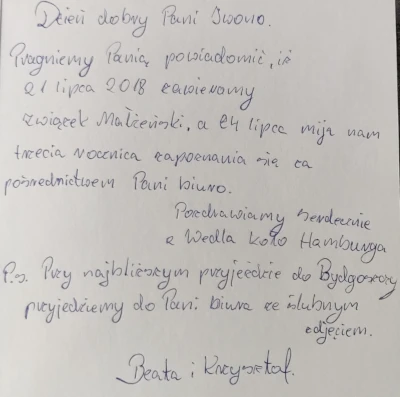 Dzień dobry Pani Iwono.
Pragniemy Panią powiadomić, iż
21 lipca 2018 zawieramy
związek Małżeński, a 24 lipca mija nam
trzecia rocznica zapoznania się za
pośrednictwem Pani biuro.
Pozdrawiamy serdecznie
z Wedla koło Hamburga
P.s. Przy najbliższym przyjeździe do Bydgoszczy
przyjedziemy do Pani biura ze ślubnym
zdjęciem.
Beata i Krzysztof.